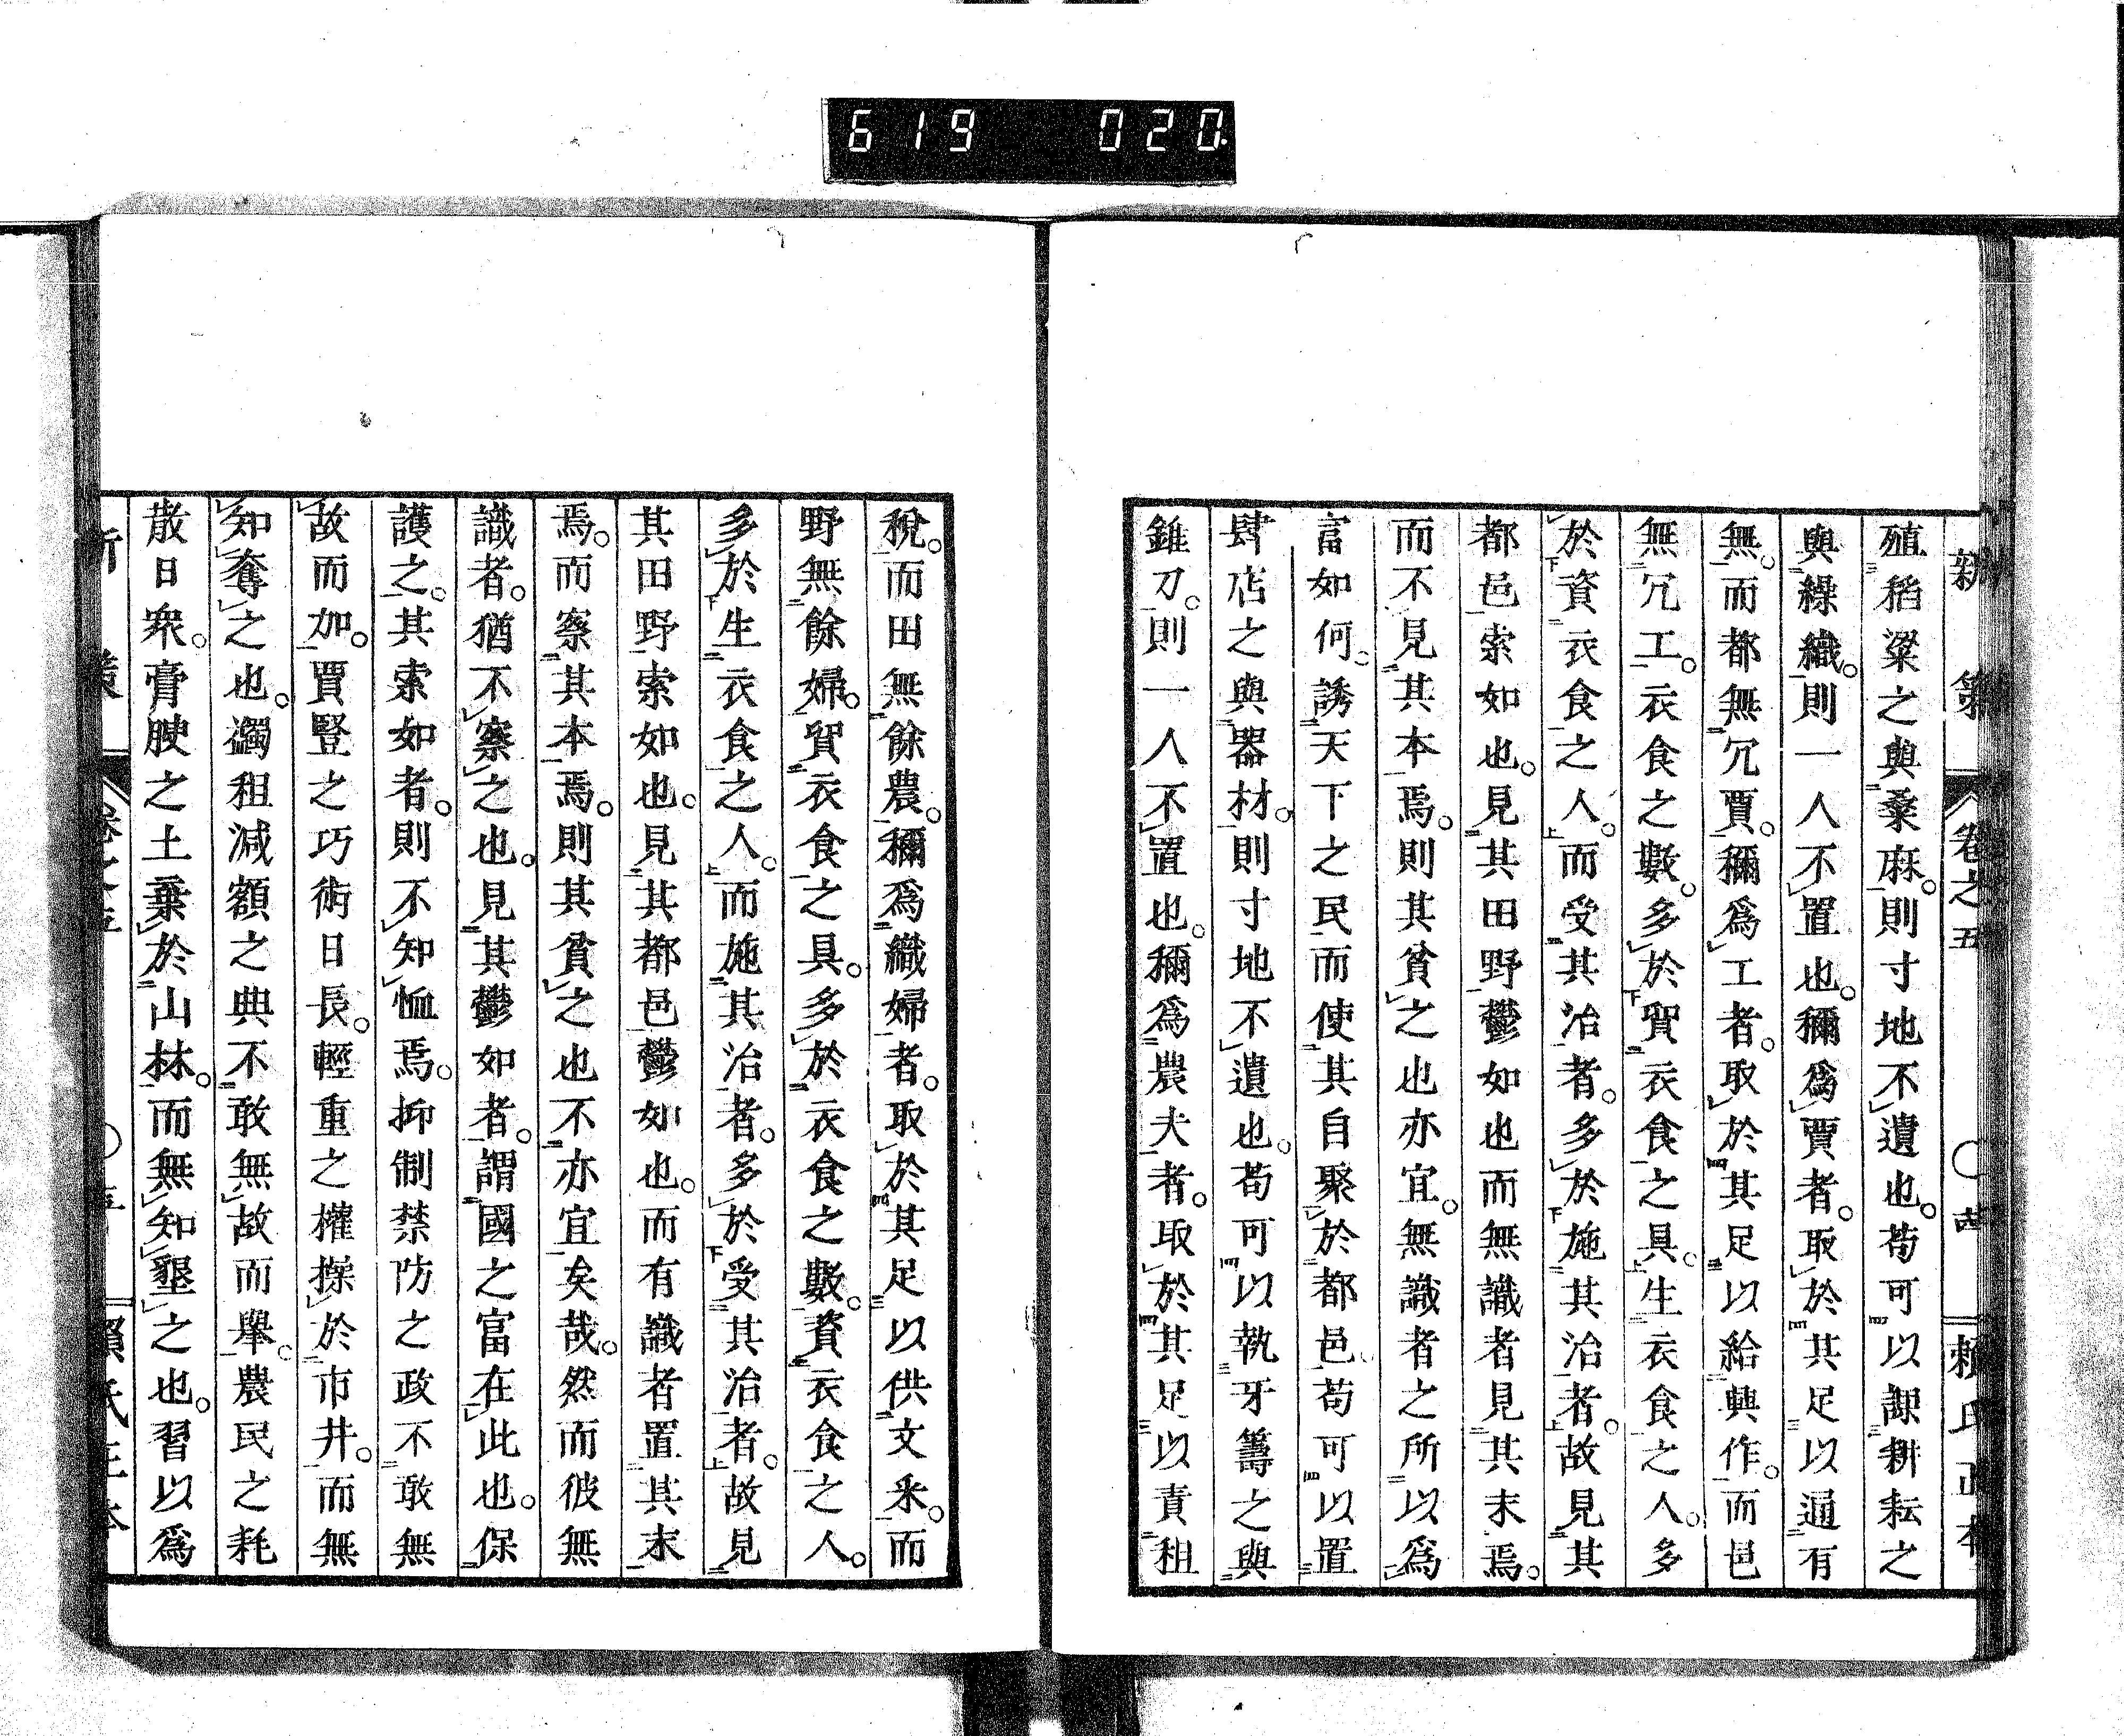 619 020
新策 卷之五 ○ 十四 賴氏正本
殖稻粱之與桑麻。則寸地不遺也。苟可以課耕耘之
與繰織。則一人不置也。穪爲賈者。取於其足以通有
無。而都無冗賈。穪爲工者。取於其足以給興作。而邑
無冗工。衣食之數。多於貿衣食之具。生衣食之人。多
於資衣食之人。而受其治者。多於施其治者。故見其
都邑索如也。見其田野鬱如也而無識者見其末焉。
而不見其本焉。則其貧之也亦宜。無識者之所以爲
富如何。誘天下之民而使其自聚於都邑。苟可以置
肆店之與器材。則寸地不遺也。苟可以執牙籌之與
錐刀。則一人不置也。穪爲農夫者。取於其足以責租
稅。而田無餘農。穪爲織婦者。取於其足以供文釆。而
野無餘婦。貿衣食之具。多於衣食之數。資衣食之人。
多於生衣食之人。而施其治者。多於受其治者。故見
其田野索如也。見其都邑鬱如也。而有識者置其末
焉。而察其本焉。則其貧之也不亦宜矣哉。然而彼無
識者。猶不察之也。見其鬱如者。謂國之富在此也。保
護之。其索如者。則不知恤焉。抑制禁防之政不敢無
故而加。賈豎之巧術日長。輕重之權操於市井。而無
知奪之也。蠲租減額之典不敢無故而舉。農民之耗
散日衆。膏腴之土棄於山林。而無知墾之也。習以爲